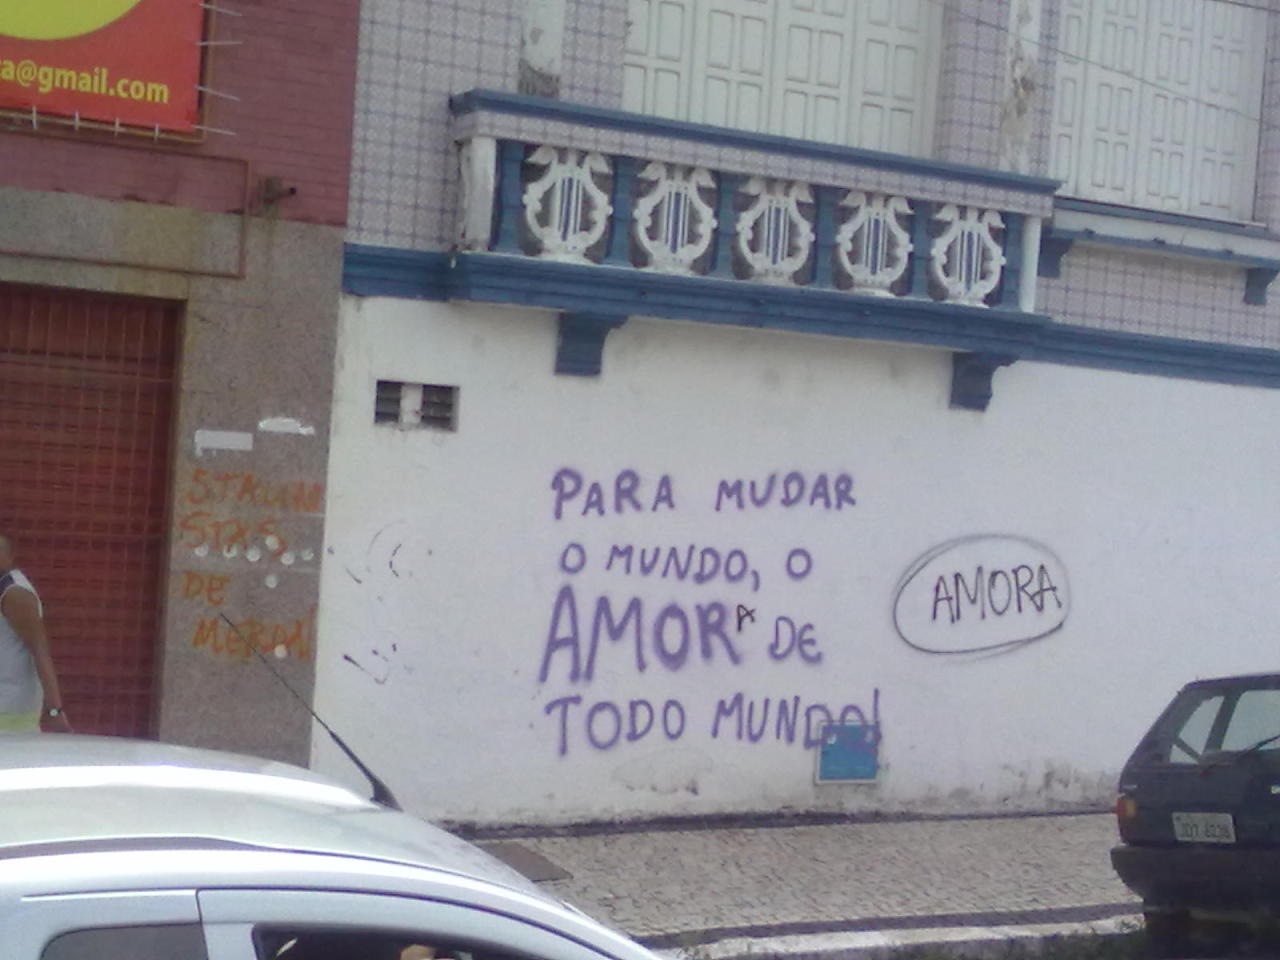 a@gmail.com
STALINI
STAS
DE
MERDA!
PARA MUDAR
O MUNDO, O
AMORA DE
TODO MUNDO!
AMORA